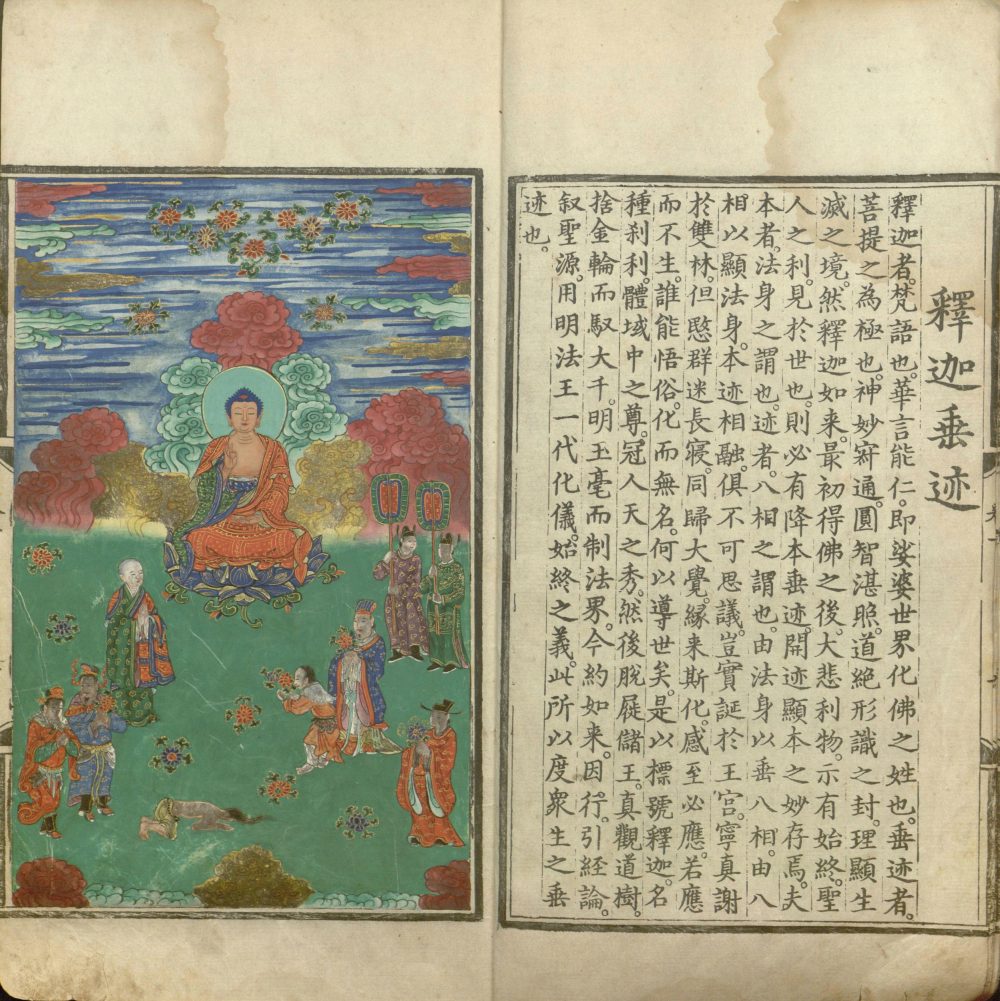 釋迦垂迹
釋迦者。梵語也。華言能仁。即娑婆世界化佛之姓也。垂迹者。
菩提之為極也。神妙寂通。圓智湛照。道絕形識之封。理顯生
滅之境。然釋迦如來。最初得佛之後。大悲利物。示有始終。聖
人之利。見於世也。則必有降本垂迹。開迹顯本之妙存焉。夫
本者。法身之謂也。迹者。八相之謂也。由法身以垂八相。由八
相以顯法身。本迹相融。俱不可思議。豈實誕於王宮。寧真謝
於雙林。但愍群迷長寢。同歸大覺。緣来斯化。感至必應。若應
而不生。誰能悟俗。化而無名。何以導世矣。是以標號釋迦。名
種刹利。體域中之尊。冠人天之秀。然後脫屣儲王。真觀道樹。
捨金輪而馭大千。明玉毫而制法界。今約如来。因行。引経論。
叙聖源。用明法王一代化儀。始終之義。此所以度衆生之垂
迹也。